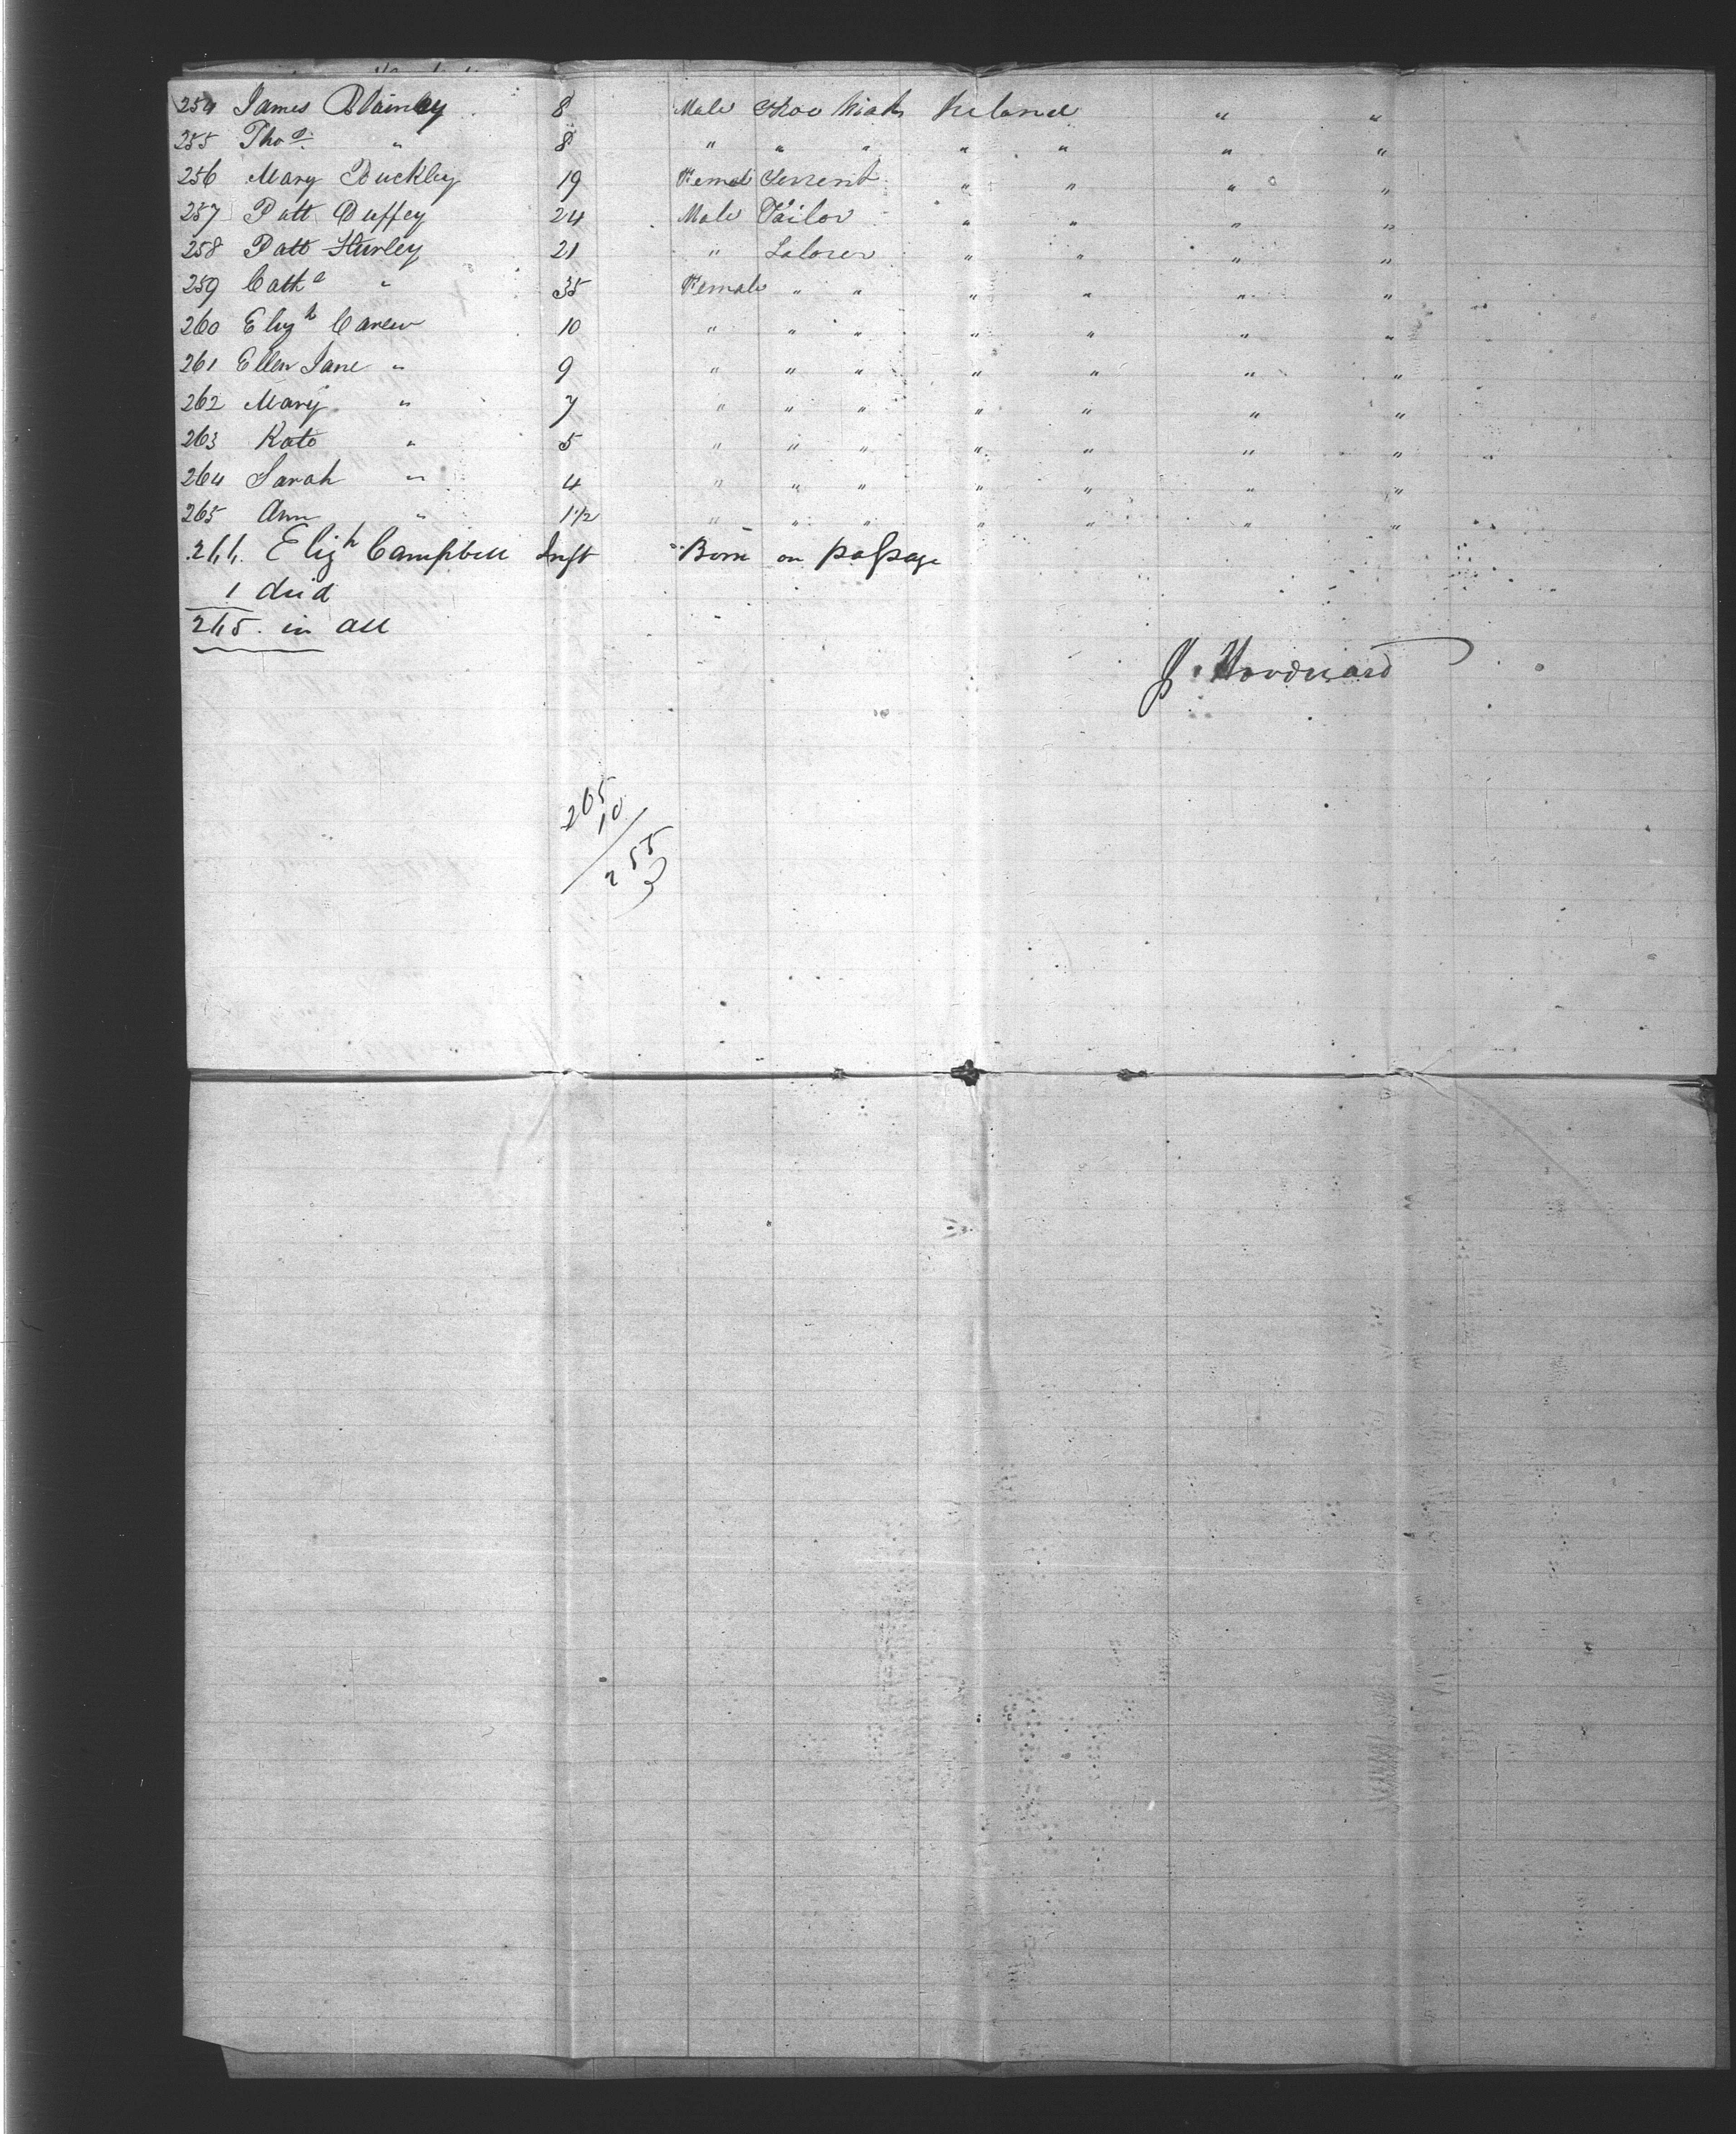 254 James Blainley 8 Male Shoe Mak Ireland " "
255 Thos " 8 " " " " " " "
256 Mary Buckley 19 Femal Servent " " " "
257 Patt Duffey 24 Male Tailor " " " "
258 Patt Hurley 21 " Laborer " " " "
259 Cathe " 35 Female " " " " " "
260 Elizh Carew 10 " " " " " " "
261 Ellen Jane " 9 " " " " " " "
262 Mary " 7 " " " " " " "
263 Kate " 5 " " " " " " "
264 Sarah " 4 " " " " " " "
265 Ann " 1 1/2 " " " " " " "
266. Elizh Campbell Inft Born on passage
1 died
265. in all
J. Woodward
265
10
255
3